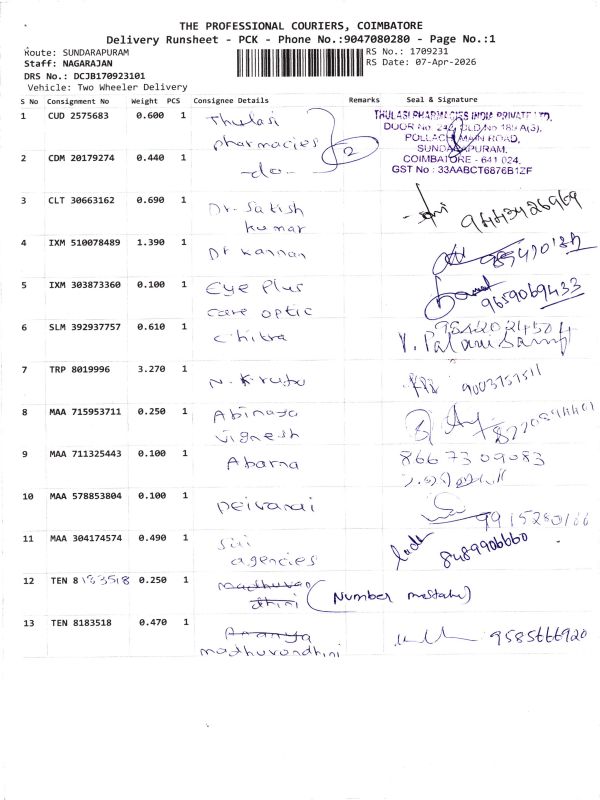 THE PROFESSIONAL COURIERS, COIMBATORE
Delivery Runsheet - PCK - Phone No.:9047080280 - Page No.:1
Route: SUNDARAPURAM
RS No.: 1709231
Staff: NAGARAJAN
RS Date: 07-Apr-2026
DRS No.: DCJB170923101
Vehicle: Two Wheeler Delivery
S No Consignment No Weight PCS Consignee Details Remarks Seal & Signature
1 CUD 2575683 0.600 1 Thulasi pharmacies
THULASI PHARMACIES INDIA PRIVATE LTD,
POLLACHI MAIN ROAD,
SUNDARAPURAM,
COIMBATORE - 641 024.
GST No : 33AABCT6876B1ZF
2 CDM 20179274 0.440 1 -do- 2
3 CLT 30663162 0.690 1 Dr. Satish kumar 9443426969
4 IXM 510078489 1.390 1 Dr Kannan
5 IXM 303873360 0.100 1 Eye Plus care optic 9659069433
6 SLM 392937757 0.610 1 Chitra
V. Palanisamy
7 TRP 8019996 3.270 1
8 MAA 715953711 0.250 1 Abinaya vignesh
9 MAA 711325443 0.100 1 Abarna 8667309083
10 MAA 578853804 0.100 1 Deivanai
11 MAA 304174574 0.490 1 Siri agencies 8489906660
12 TEN 8133518 0.250 1 madhuvan dhini (Number mistake)
13 TEN 8183518 0.470 1 Ananya madhuvandhini 9585666920